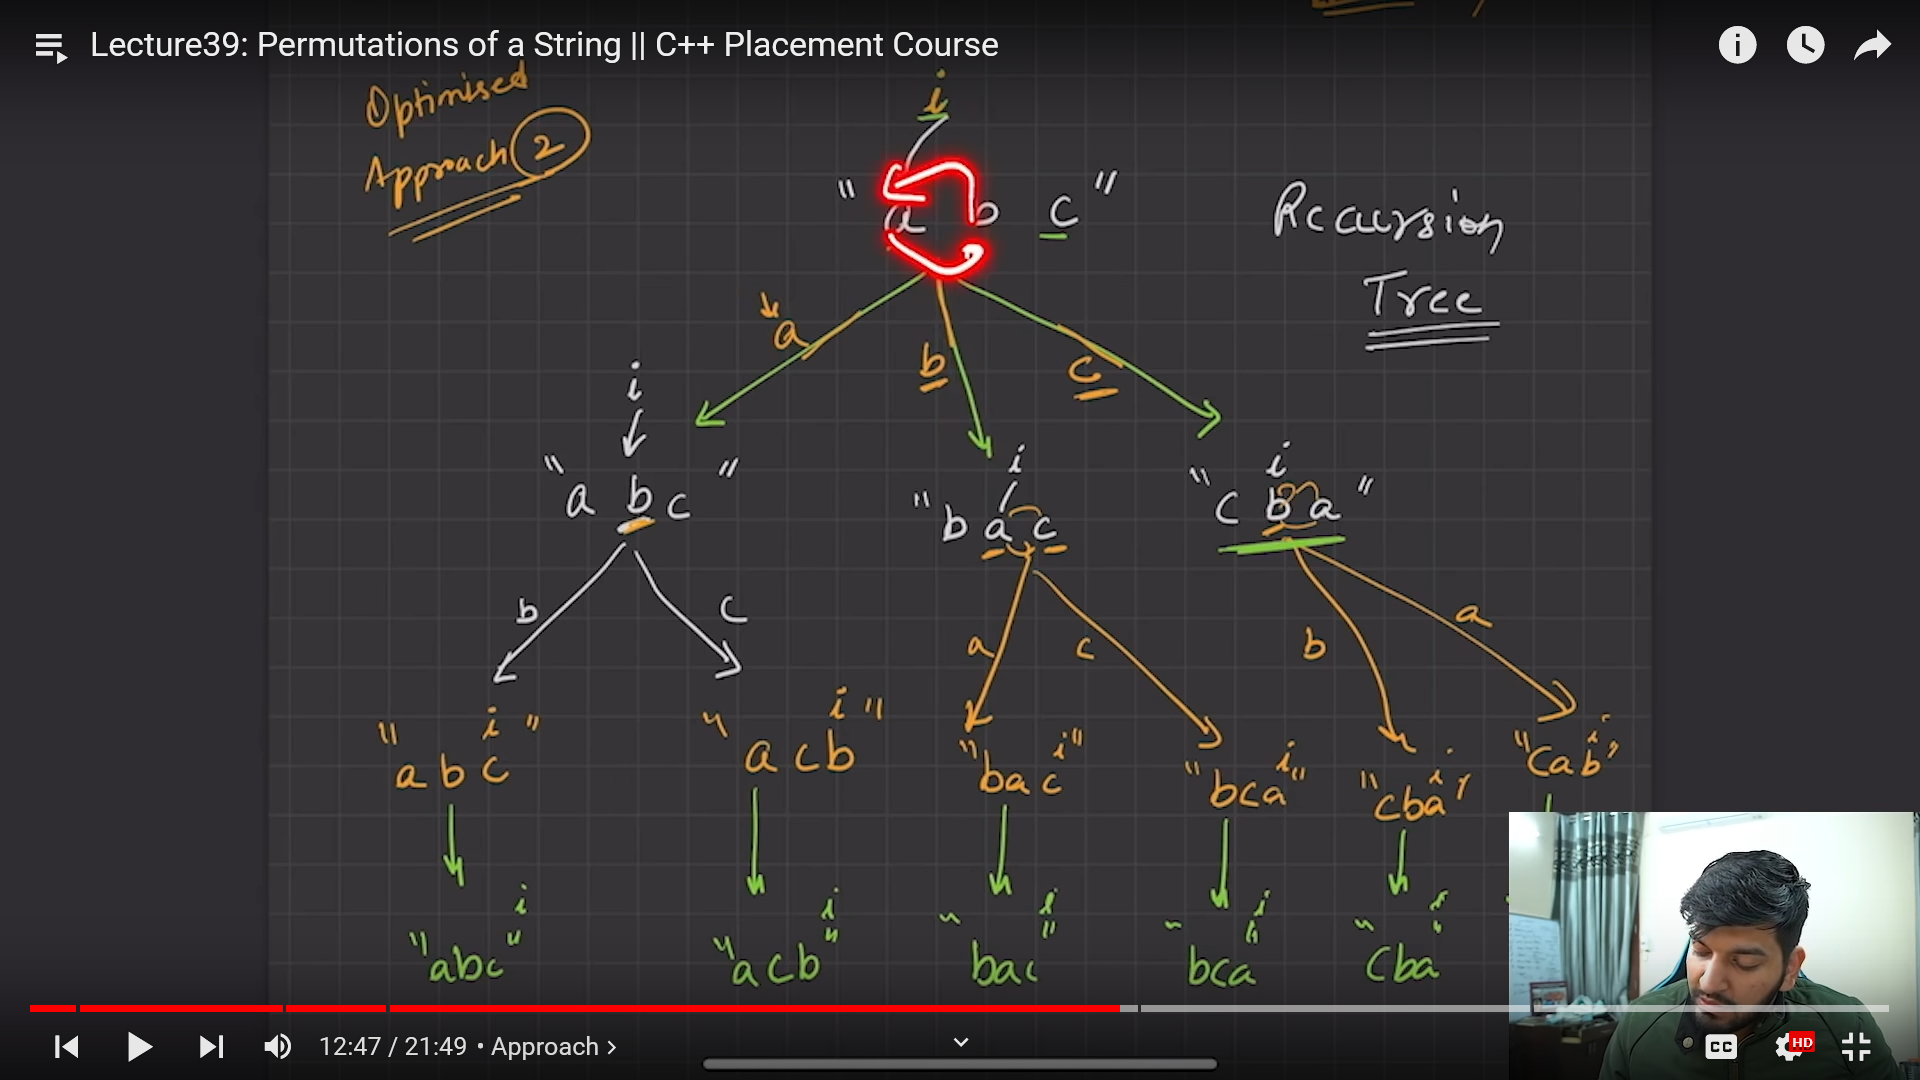 Lecture39: Permutations of a String || C++ Placement Course
Optimised
Approach 2
i
" a b c "
Recursion
Tree
a
b
c
i
" a b c "
i
" b a c "
i
" c b a "
b
c
a
c
b
a
i
" a b c "
i
" a c b "
i
" b a c "
i
" b c a "
i
" c b a "
i
" c a b "
i
" abc "
i
" acb "
i
" bac "
i
" bca "
i
" cba "
12:47 / 21:49 • Approach >
CC
HD